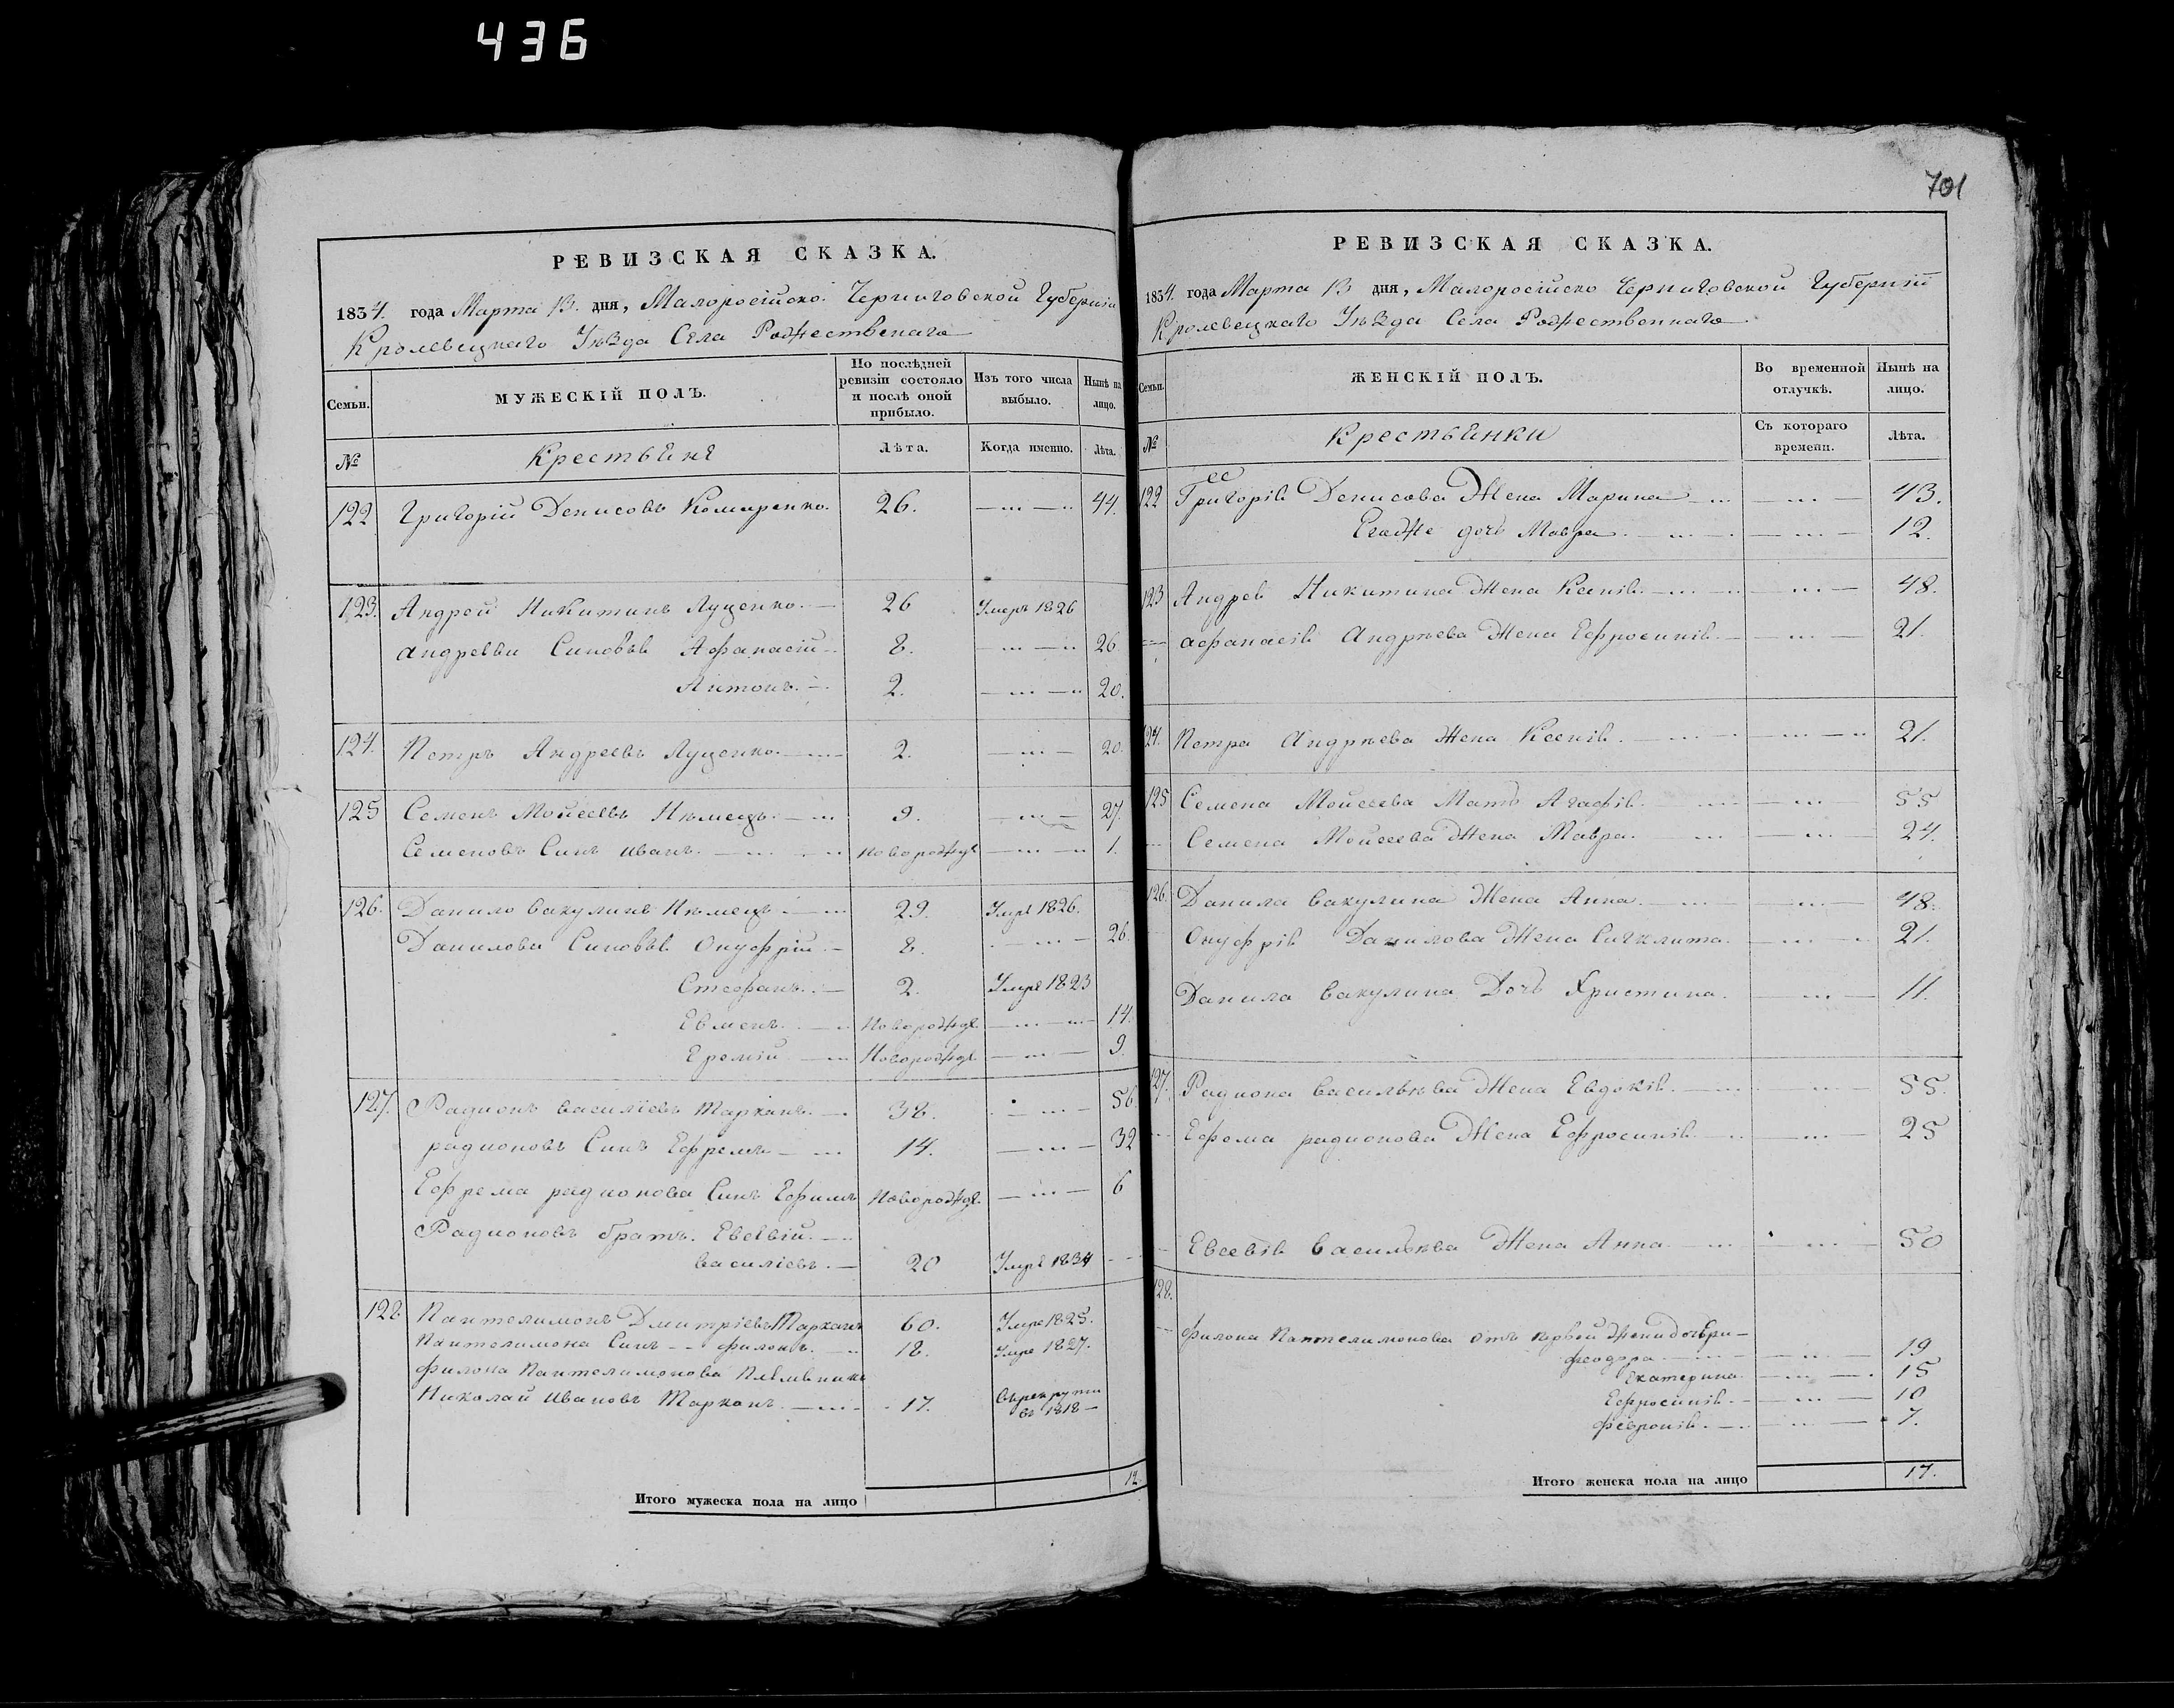 436
701
РЕВИЗСКАЯ СКАЗКА.
1834. года Марта 13. дня, Малоросійско: Черниговской Губерніи
Кролевецкаго Уѣзда Села Рождественаго
Семьи.
МУЖЕСКІЙ ПОЛЪ.
По послѣдней ревизіи состояло и послѣ оной прибыло.
Изъ того числа выбыло.
Нынѣ на лицо.
№
Крестьяне
Лѣта.
Когда именно.
Лѣта.
122 Григорій Денисовъ Комиренко. 26. 44.
123. Андрей Никитинъ Луценко. 26 Умеръ 1826
Андреевы Синовья Афанасій 8. 26.
Антонъ. 2. 20.
124. Петръ Андреевъ Луценко. 2. 20.
125 Семенъ Мойсеевъ Нѣмецъ. 9. 27.
Семеновъ Синъ Иванъ. Новорожде 1.
126. Данило Вакулинъ Нѣмецъ. 29. Умре 1826.
Данилови Синовья Онуфрій 8. 26.
Стефанъ. 2. Умре 1823
Евменъ. Новорожде. 14.
Еромій Новорожде 9.
127. Радионъ Василіевъ Тарканъ. 38. 56.
радионовъ Синъ Ефремъ 14. 32
Ефрема радионова Синъ Ефимъ Новорожде. 6
Радионовъ братъ. Евсевій.
Василіевъ. 20 Умре 1834
128. Пантелимонъ Дмитріевъ Тарканъ 60. Умре 1825.
Пантелимона Синъ филонъ. 18. Умре 1827.
филона Пантелимонова Племѣникъ
Николай Ивановъ Тарканъ. 17. Въ рекрути
въ 1818
Итого мужеска пола на лицо 12.
РЕВИЗСКАЯ СКАЗКА.
1834. года Марта 13 дня, Малоросійско Черниговской Губерніи
Кролевецкаго Уѣзда Села Рождественнаго
Семьи.
ЖЕНСКІЙ ПОЛЪ.
Во временной отлучкѣ.
Нынѣ на лицо.
№
Крестьянки
Съ котораго времени.
Лѣта.
122 Григорія Денисова Жена Марина 43.
Егоже дочь Мавра. 12.
123 Андрея Никитина Жена Ксенія. 48.
афанасія Андрѣева Жена Ефросинія. 21.
124. Петра Андрѣева Жена Ксенія. 21.
125 Семена Мойсеева Мать Агафія. 55
Семена Мойсеева Жена Мавра. 24.
126. Данила Вакулина Жена Анна. 48.
Онуфрія Данилова Жена Сигклита. 21.
Данила Вакулина Дочь Христина. 11.
127. Радиона Васильѣва Жена Евдокія. 55.
Ефрема радионова Жена Ефросинія. 25
Евсевія Васильѣва Жена Анна 50
128.
филона Пантелимонова отъ первой жени дочери
феодора 19
Екатерина. 15
Ефросинія. 10
февронія. 7.
Итого женска пола на лицо 17.